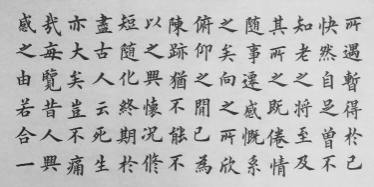 所遇暫得於已
快然自足曾不
知老之將至及
其所之既倦情
隨事遷感慨系
之矣向之所欣
俯仰之閒已為
陳跡猶不能不
以之興懷况修
短隨化終期於
盡古人云死生
亦大矣豈不痛
哉每覽昔人興
感之由若合一